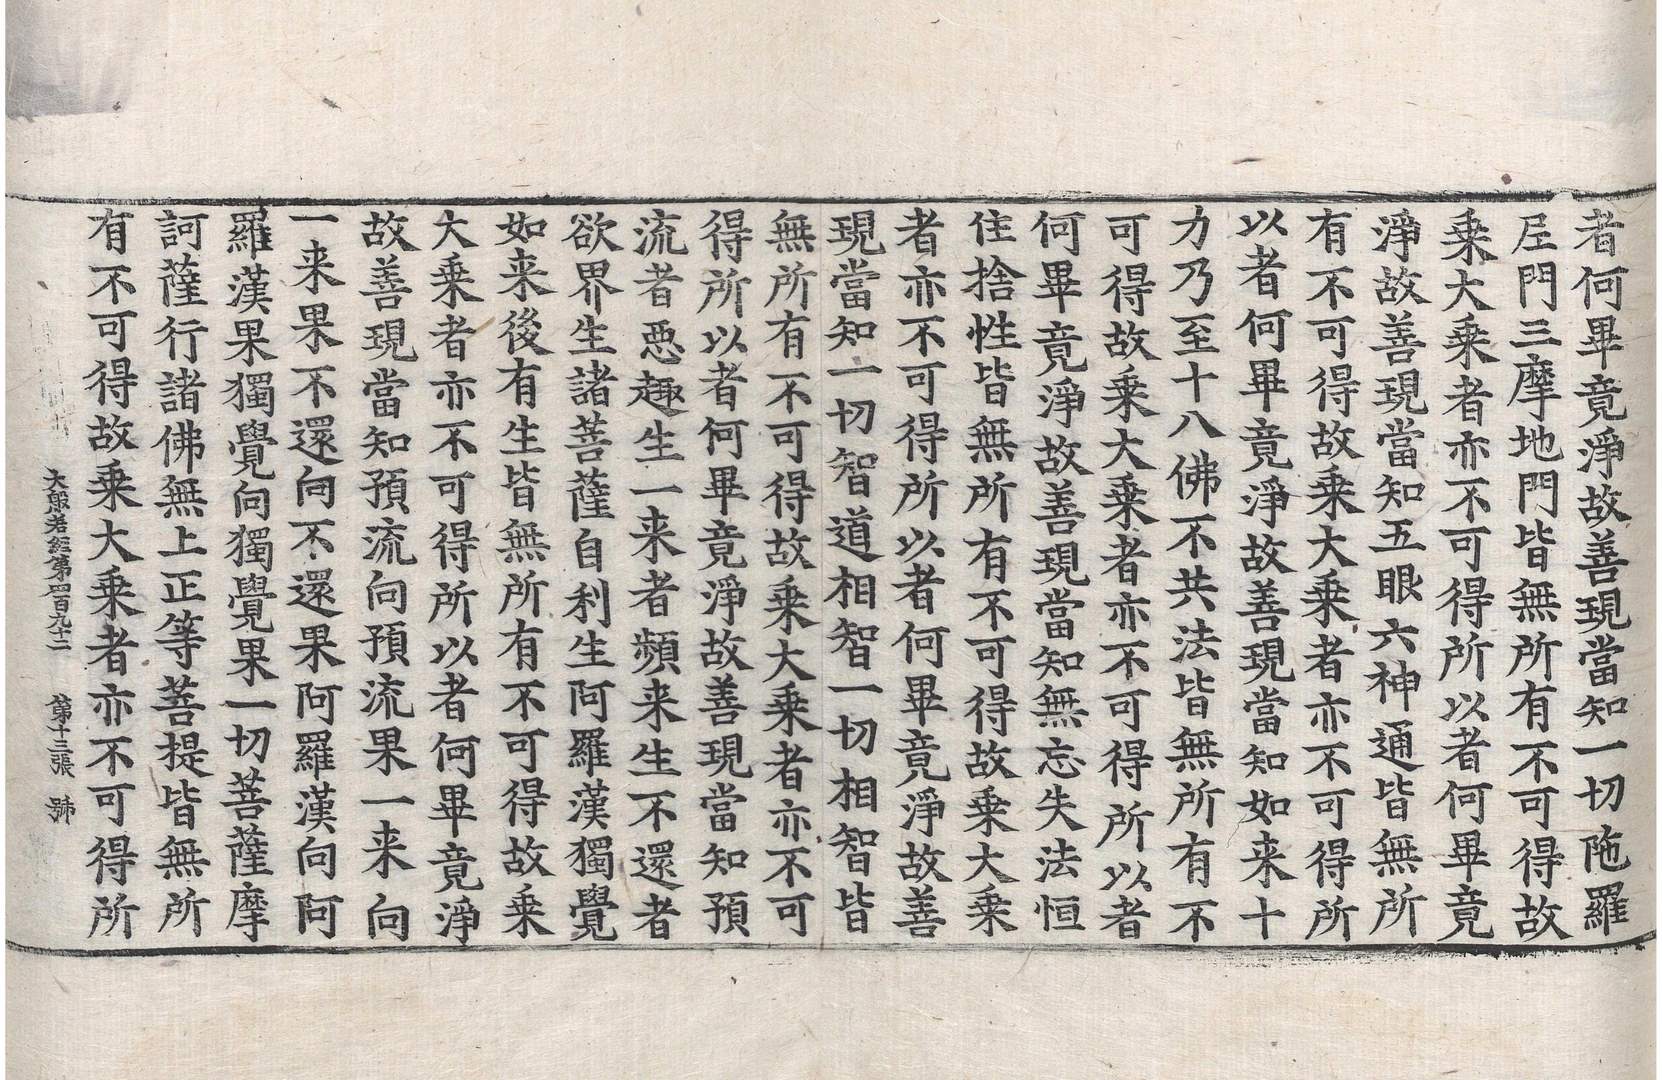 者何畢竟淨故善現當知一切陁羅
𡰱門三摩地門皆無所有不可得故
乗大乗者亦不可得所以者何畢竟
淨故善現當知五眼六神通皆無所
有不可得故乗大乗者亦不可得所
以者何畢竟淨故善現當知如来十
力乃至十八佛不共法皆無所有不
可得故乗大乗者亦不可得所以者
何畢竟淨故善現當知無忘失法恒
住捨性皆無所有不可得故乗大乗
者亦不可得所以者何畢竟淨故善
現當知一切智道相智一切相智皆
無所有不可得故乗大乗者亦不可
得所以者何畢竟淨故善現當知預
流者惡趣生一来者頻来生不還者
欲界生諸菩薩自利生阿羅漢獨覺
如来後有生皆無所有不可得故乗
大乗者亦不可得所以者何畢竟淨
故善現當知預流向預流果一来向
一来果不還向不還果阿羅漢向阿
羅漢果獨覺向獨覺果一切菩薩摩
訶薩行諸佛無上正等菩提皆無所
有不可得故乗大乗者亦不可得所
大般若經第四百九十二 第十三張 號